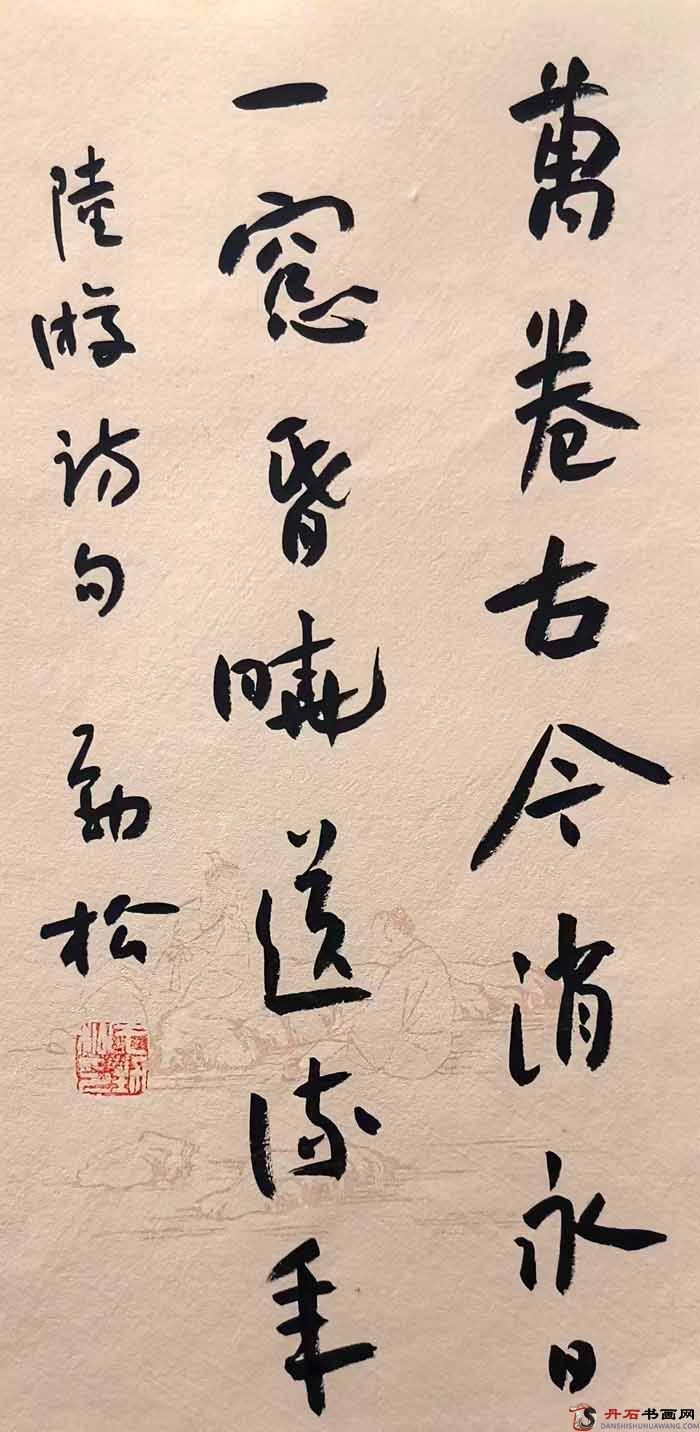 萬卷古今消永日
一窓昏曉送流年
陸游詩句 勁松
丹石书画网
DANSHISHUHUAWANG.COM